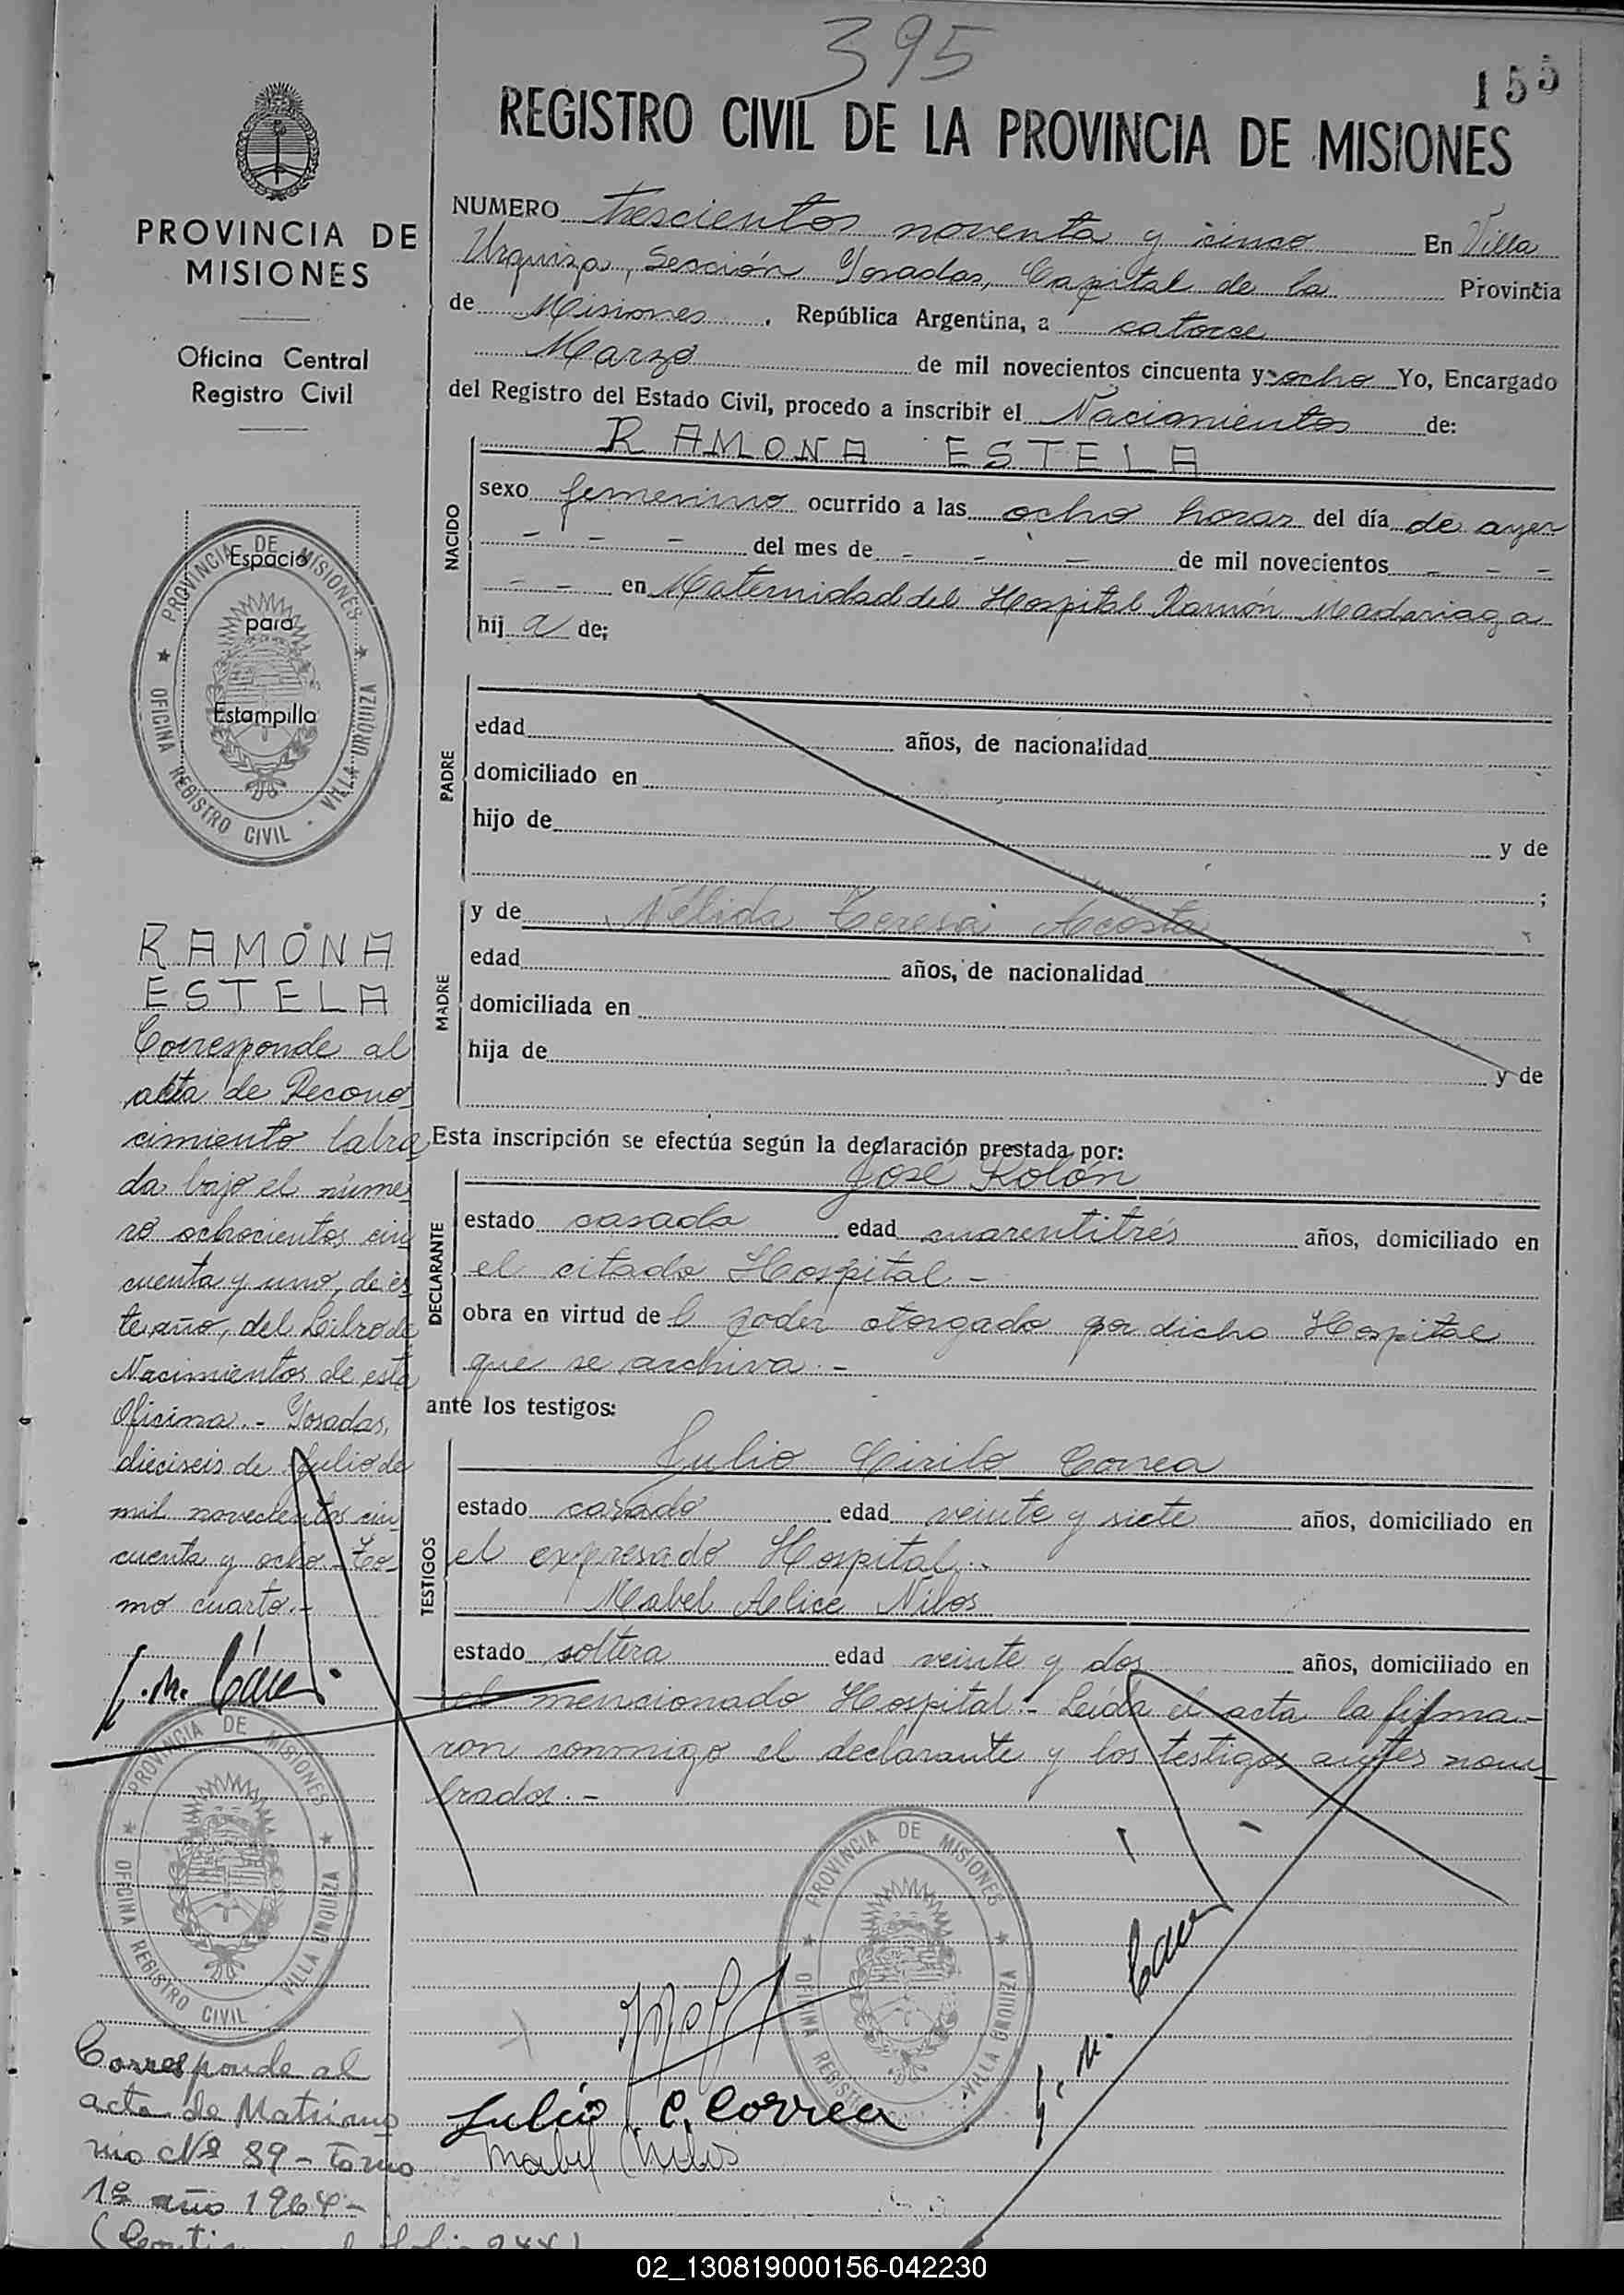 395
155
REGISTRO CIVIL DE LA PROVINCIA DE MISIONES
PROVINCIA DE
MISIONES
Oficina Central
Registro Civil
NUMERO trescientos noventa y cinco En Villa
Urquiza, Sección Posadas, Capital de la Provincia
de Misiones, República Argentina, a catorce
Marzo de mil novecientos cincuenta y ocho Yo, Encargado
del Registro del Estado Civil, procedo a inscribir el Nacimientos de:
RAMONA ESTELA
NACIDO
sexo femenino ocurrido a las ocho horas del día de ayer
- - - del mes de - - - de mil novecientos - - -
- - en Maternidad del Hospital Ramón Madariaga
hij a de;
PROVINCIA DE MISIONES
OFICINA REGISTRO CIVIL - VILLA URQUIZA
Espacio
para
Estampilla
PADRE
edad años, de nacionalidad
domiciliado en
hijo de y de
;
MADRE
y de Nélida Teresa Acosta
edad años, de nacionalidad
domiciliada en
hija de y de
Esta inscripción se efectúa según la declaración prestada por:
DECLARANTE
José Kolón
estado casado edad cuarentitrés años, domiciliado en
el citado Hospital -
obra en virtud de l poder otorgado por dicho Hospital
que se archiva.-
ante los testigos:
TESTIGOS
Julio Cirilo Correa
estado casado edad veinte y siete años, domiciliado en
el expresado Hospital.-
Mabel Alice Nilos
estado soltera edad veinte y dos años, domiciliado en
el mencionado Hospital.- Leída el acta la firma-
ron conmigo el declarante y los testigos antes nom-
brados.-
RAMONA
ESTELA
Corresponde al
acta de Recono
cimiento labra
da bajo el núme
ro ochocientos cin
cuenta y uno, de es
te año, del Libro de
Nacimientos de esta
Oficina.- Posadas,
dieciseis de Julio de
mil novecientos cin
cuenta y ocho - To-
mo cuarto.-
PROVINCIA DE MISIONES
OFICINA REGISTRO CIVIL - VILLA URQUIZA
PROVINCIA DE MISIONES
OFICINA REGIST VILLA URQUIZA
Julio C. Correa
Mabel Nilos
Corresponde al
acta de Matrimo
nio Nº 89 - Tomo
1º año 1964 -
02_130819000156-042230